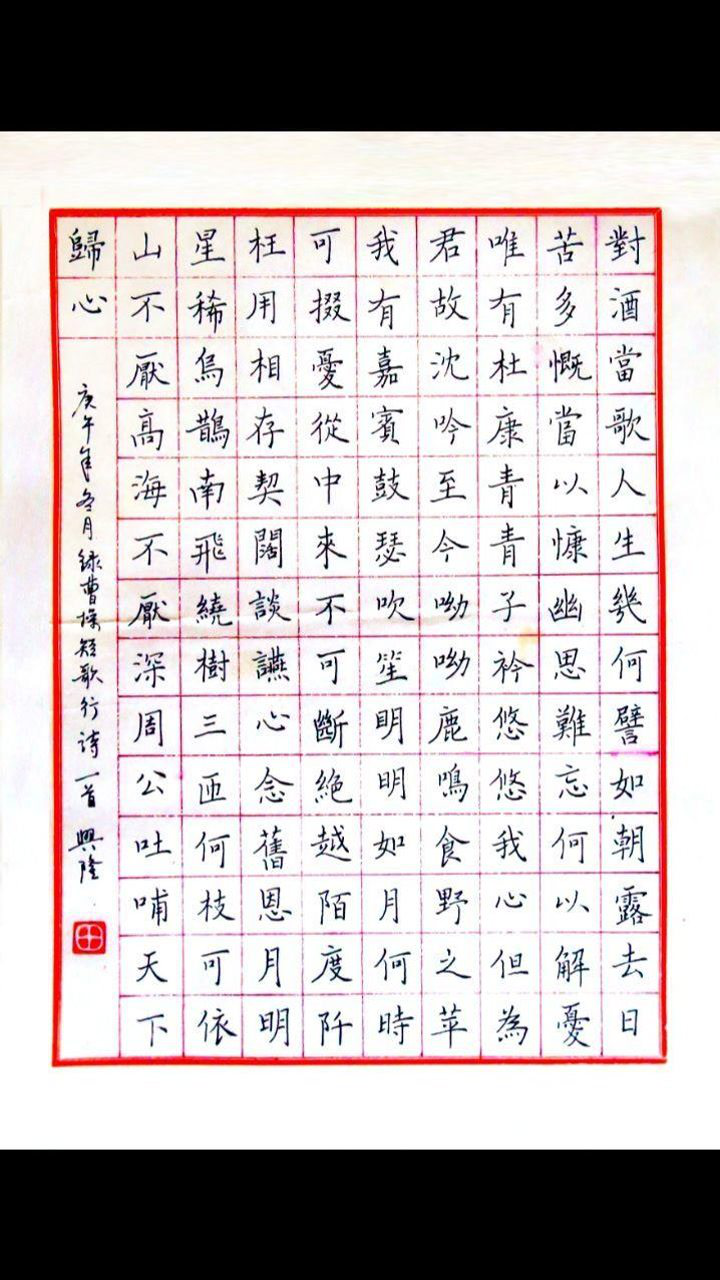 對酒當歌人生幾何譬如朝露去日
苦多慨當以慷幽思難忘何以解憂
唯有杜康青青子衿悠悠我心但為
君故沈吟至今呦呦鹿鳴食野之苹
我有嘉賓鼓瑟吹笙明明如月何時
可掇憂從中來不可斷絕越陌度阡
枉用相存契闊談讌心念舊恩月明
星稀烏鵲南飛繞樹三匝何枝可依
山不厭高海不厭深周公吐哺天下
歸心
庚午年冬月錄曹操短歌行詩一首 興隆